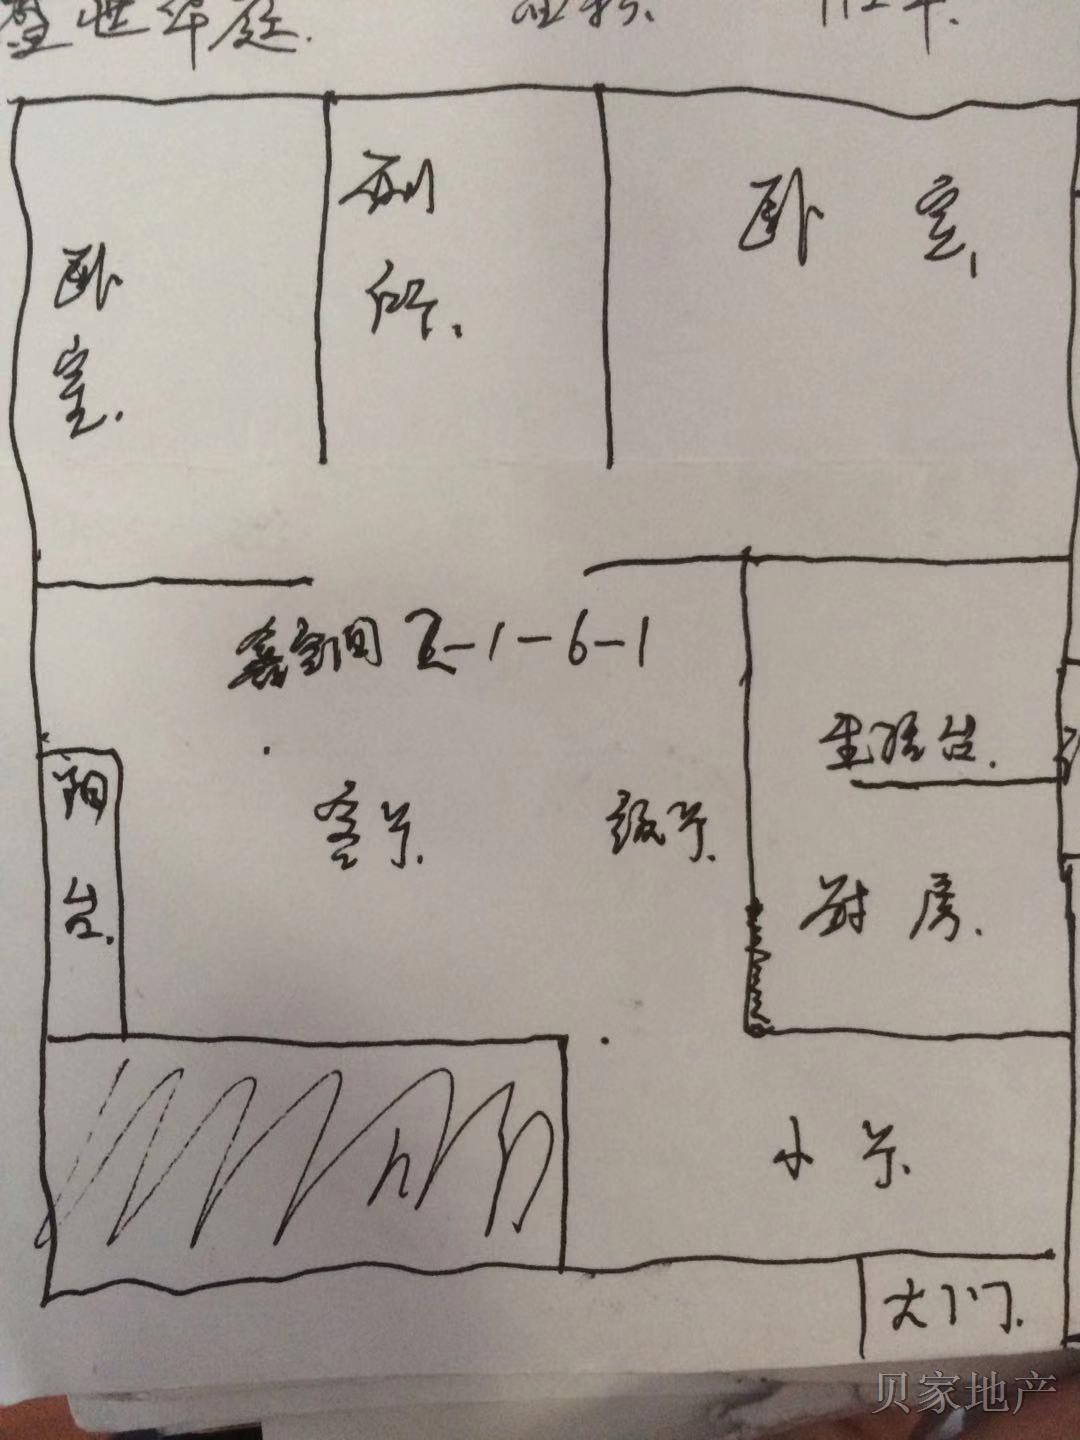 盛世华庭. 面积. 112平.
卧室.
厕所.
卧室
鑫空间 2-1-6-1
阳台.
客厅.
饭厅.
生活台.
厨房.
小厅.
大门.
贝家地产